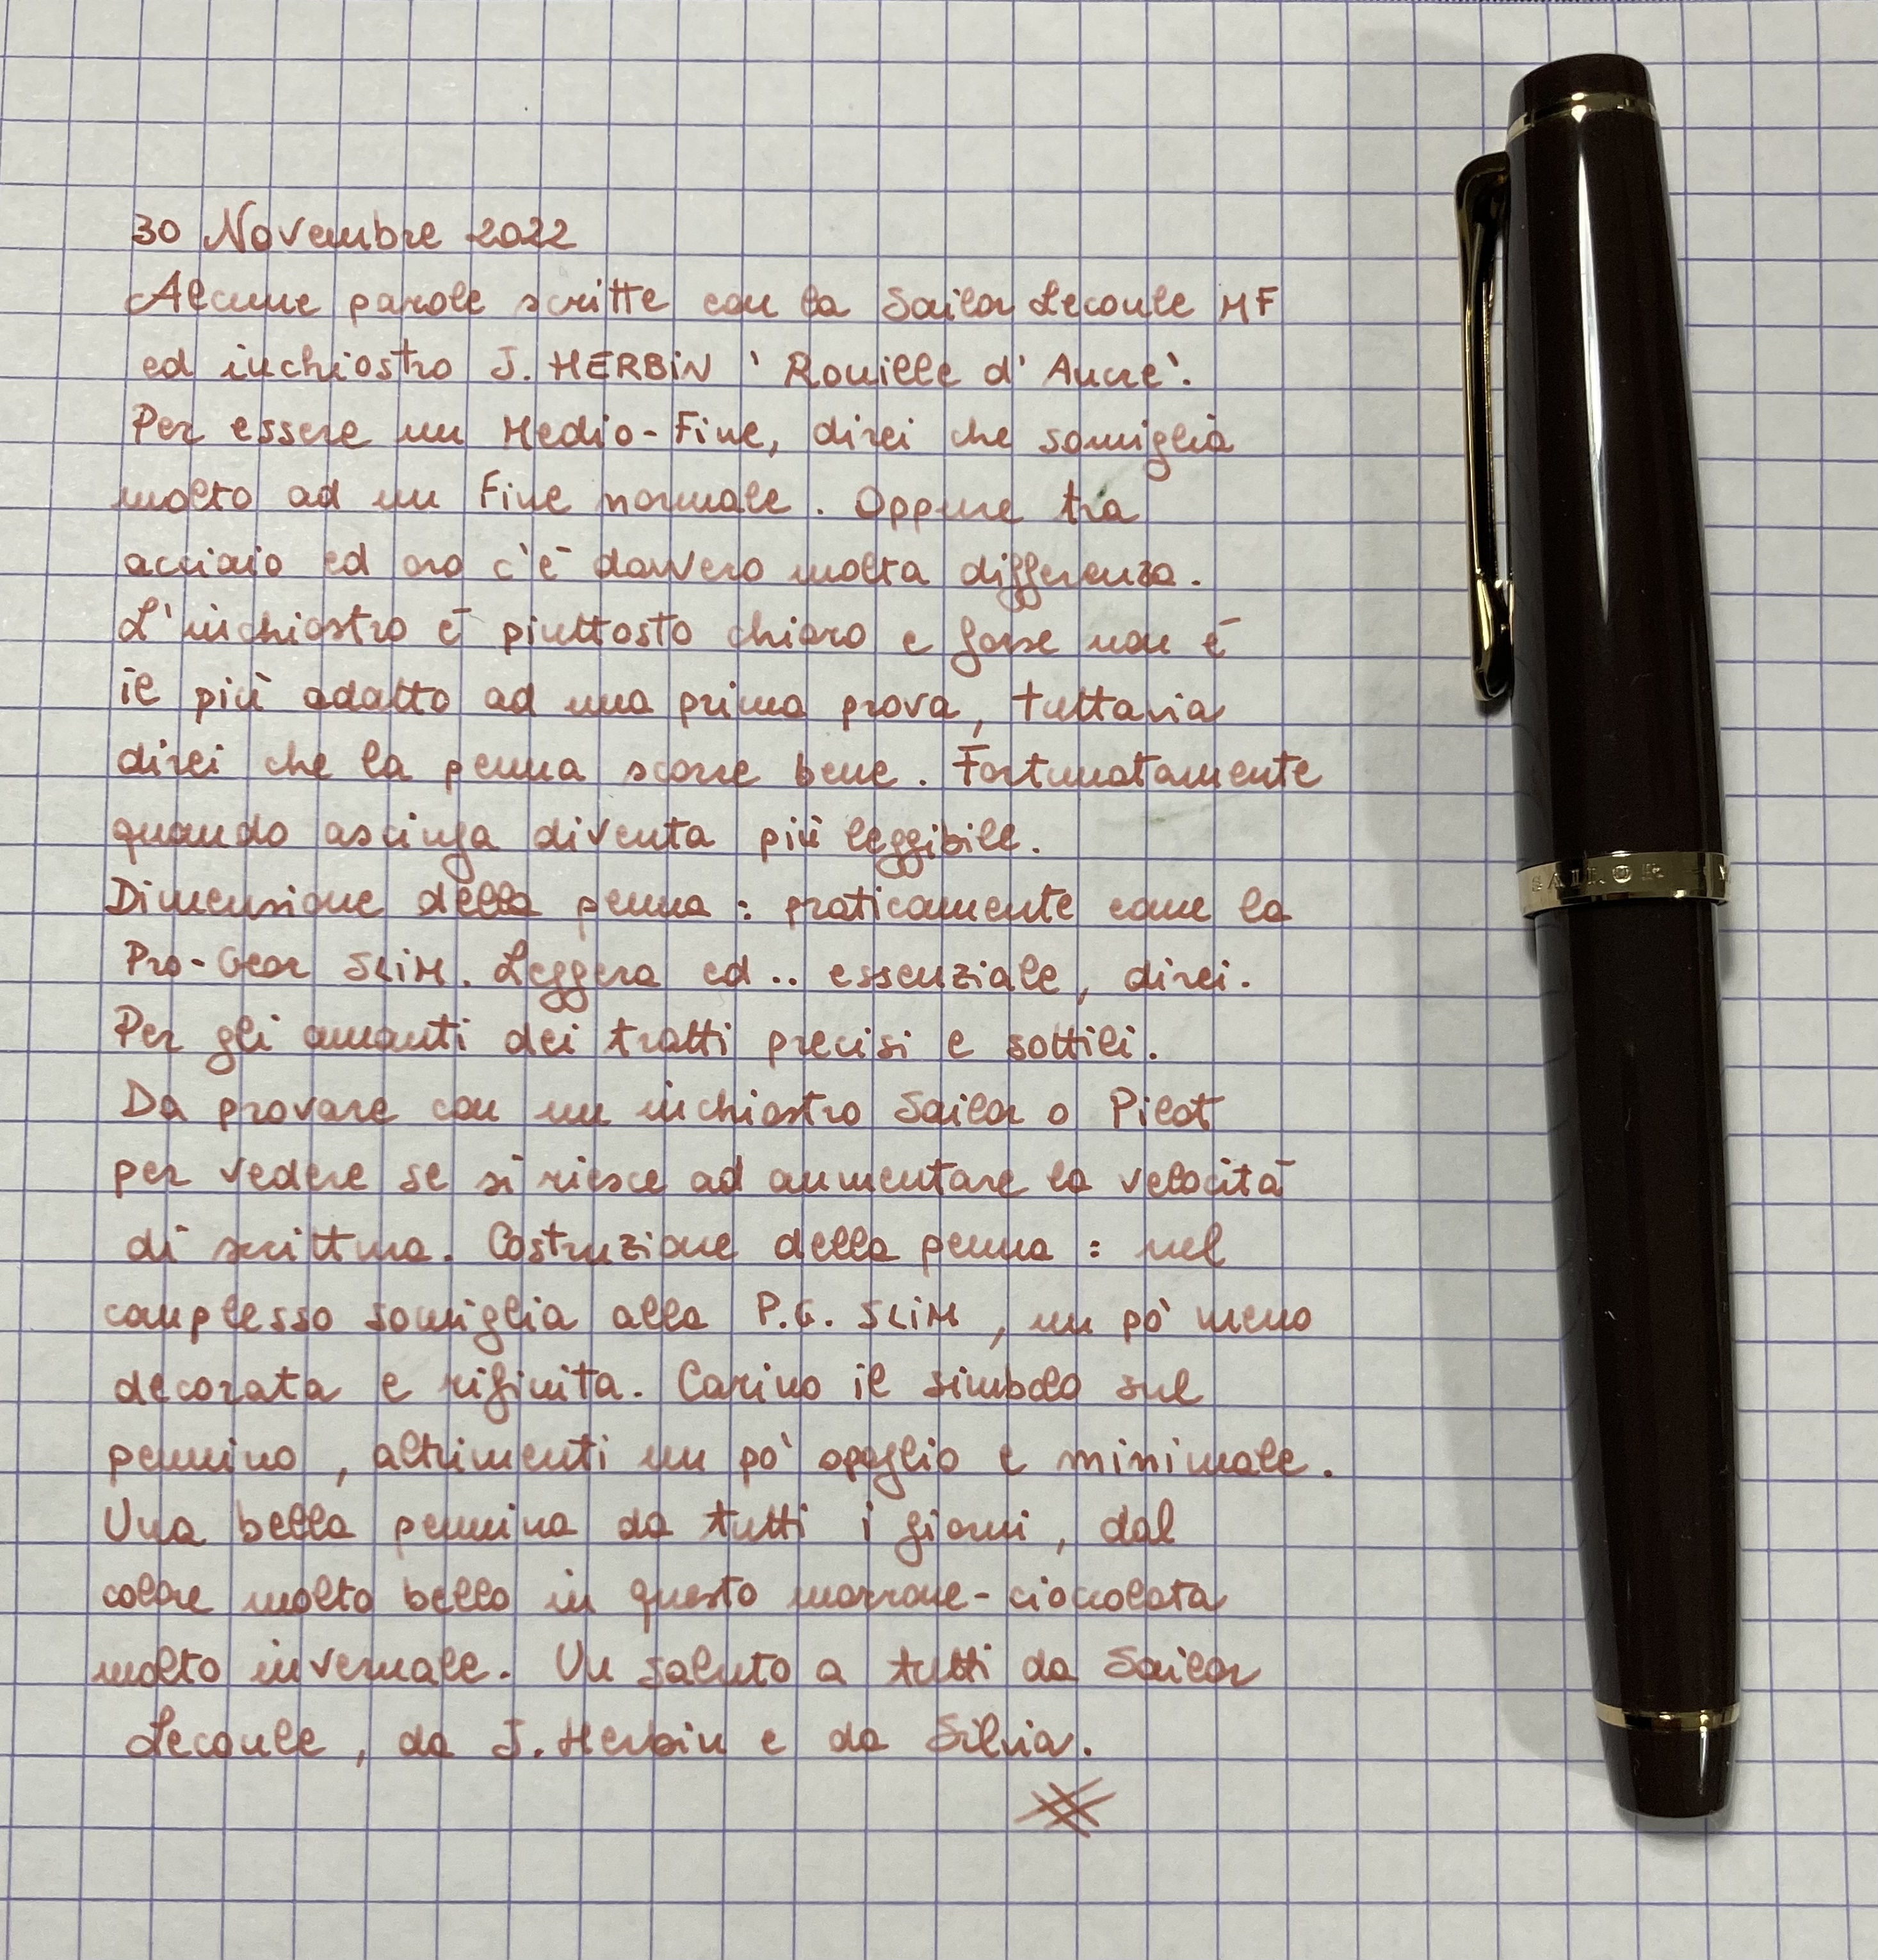 30 Novembre 2022
Alcune parole scritte con la Sailor Lecoule MF
ed inchiostro J. HERBIN ' Rouille d' Ancre'.
Per essere un Medio-Fine, direi che somiglia
molto ad un Fine normale. Oppure tra
acciaio ed oro c'è davvero molta differenza.
L'inchiostro è piuttosto chiaro e forse non è
il più adatto ad una prima prova, tuttavia
direi che la penna scorre bene. Fortunatamente
quando asciuga diventa più leggibile.
Dimensione della penna : praticamente come la
Pro-Gear SLIM. Leggera ed .. essenziale, direi.
Per gli amanti dei tratti precisi e sottili.
Da provare con un inchiostro Sailor o Pilot
per vedere se si riesce ad aumentare la velocità
di scrittura. Costruzione della penna : nel
complesso somiglia alla P.G. SLIM, un pò meno
decorata e rifinita. Carino il simbolo sul
pennino, altrimenti un pò spoglio e minimale.
Una bella pennina da tutti i giorni, dal
colore molto bello in questo marrone-cioccolata
molto invernale. Un saluto a tutti da Sailor
Lecoule, da J. Herbin e da Silvia.
SAILOR